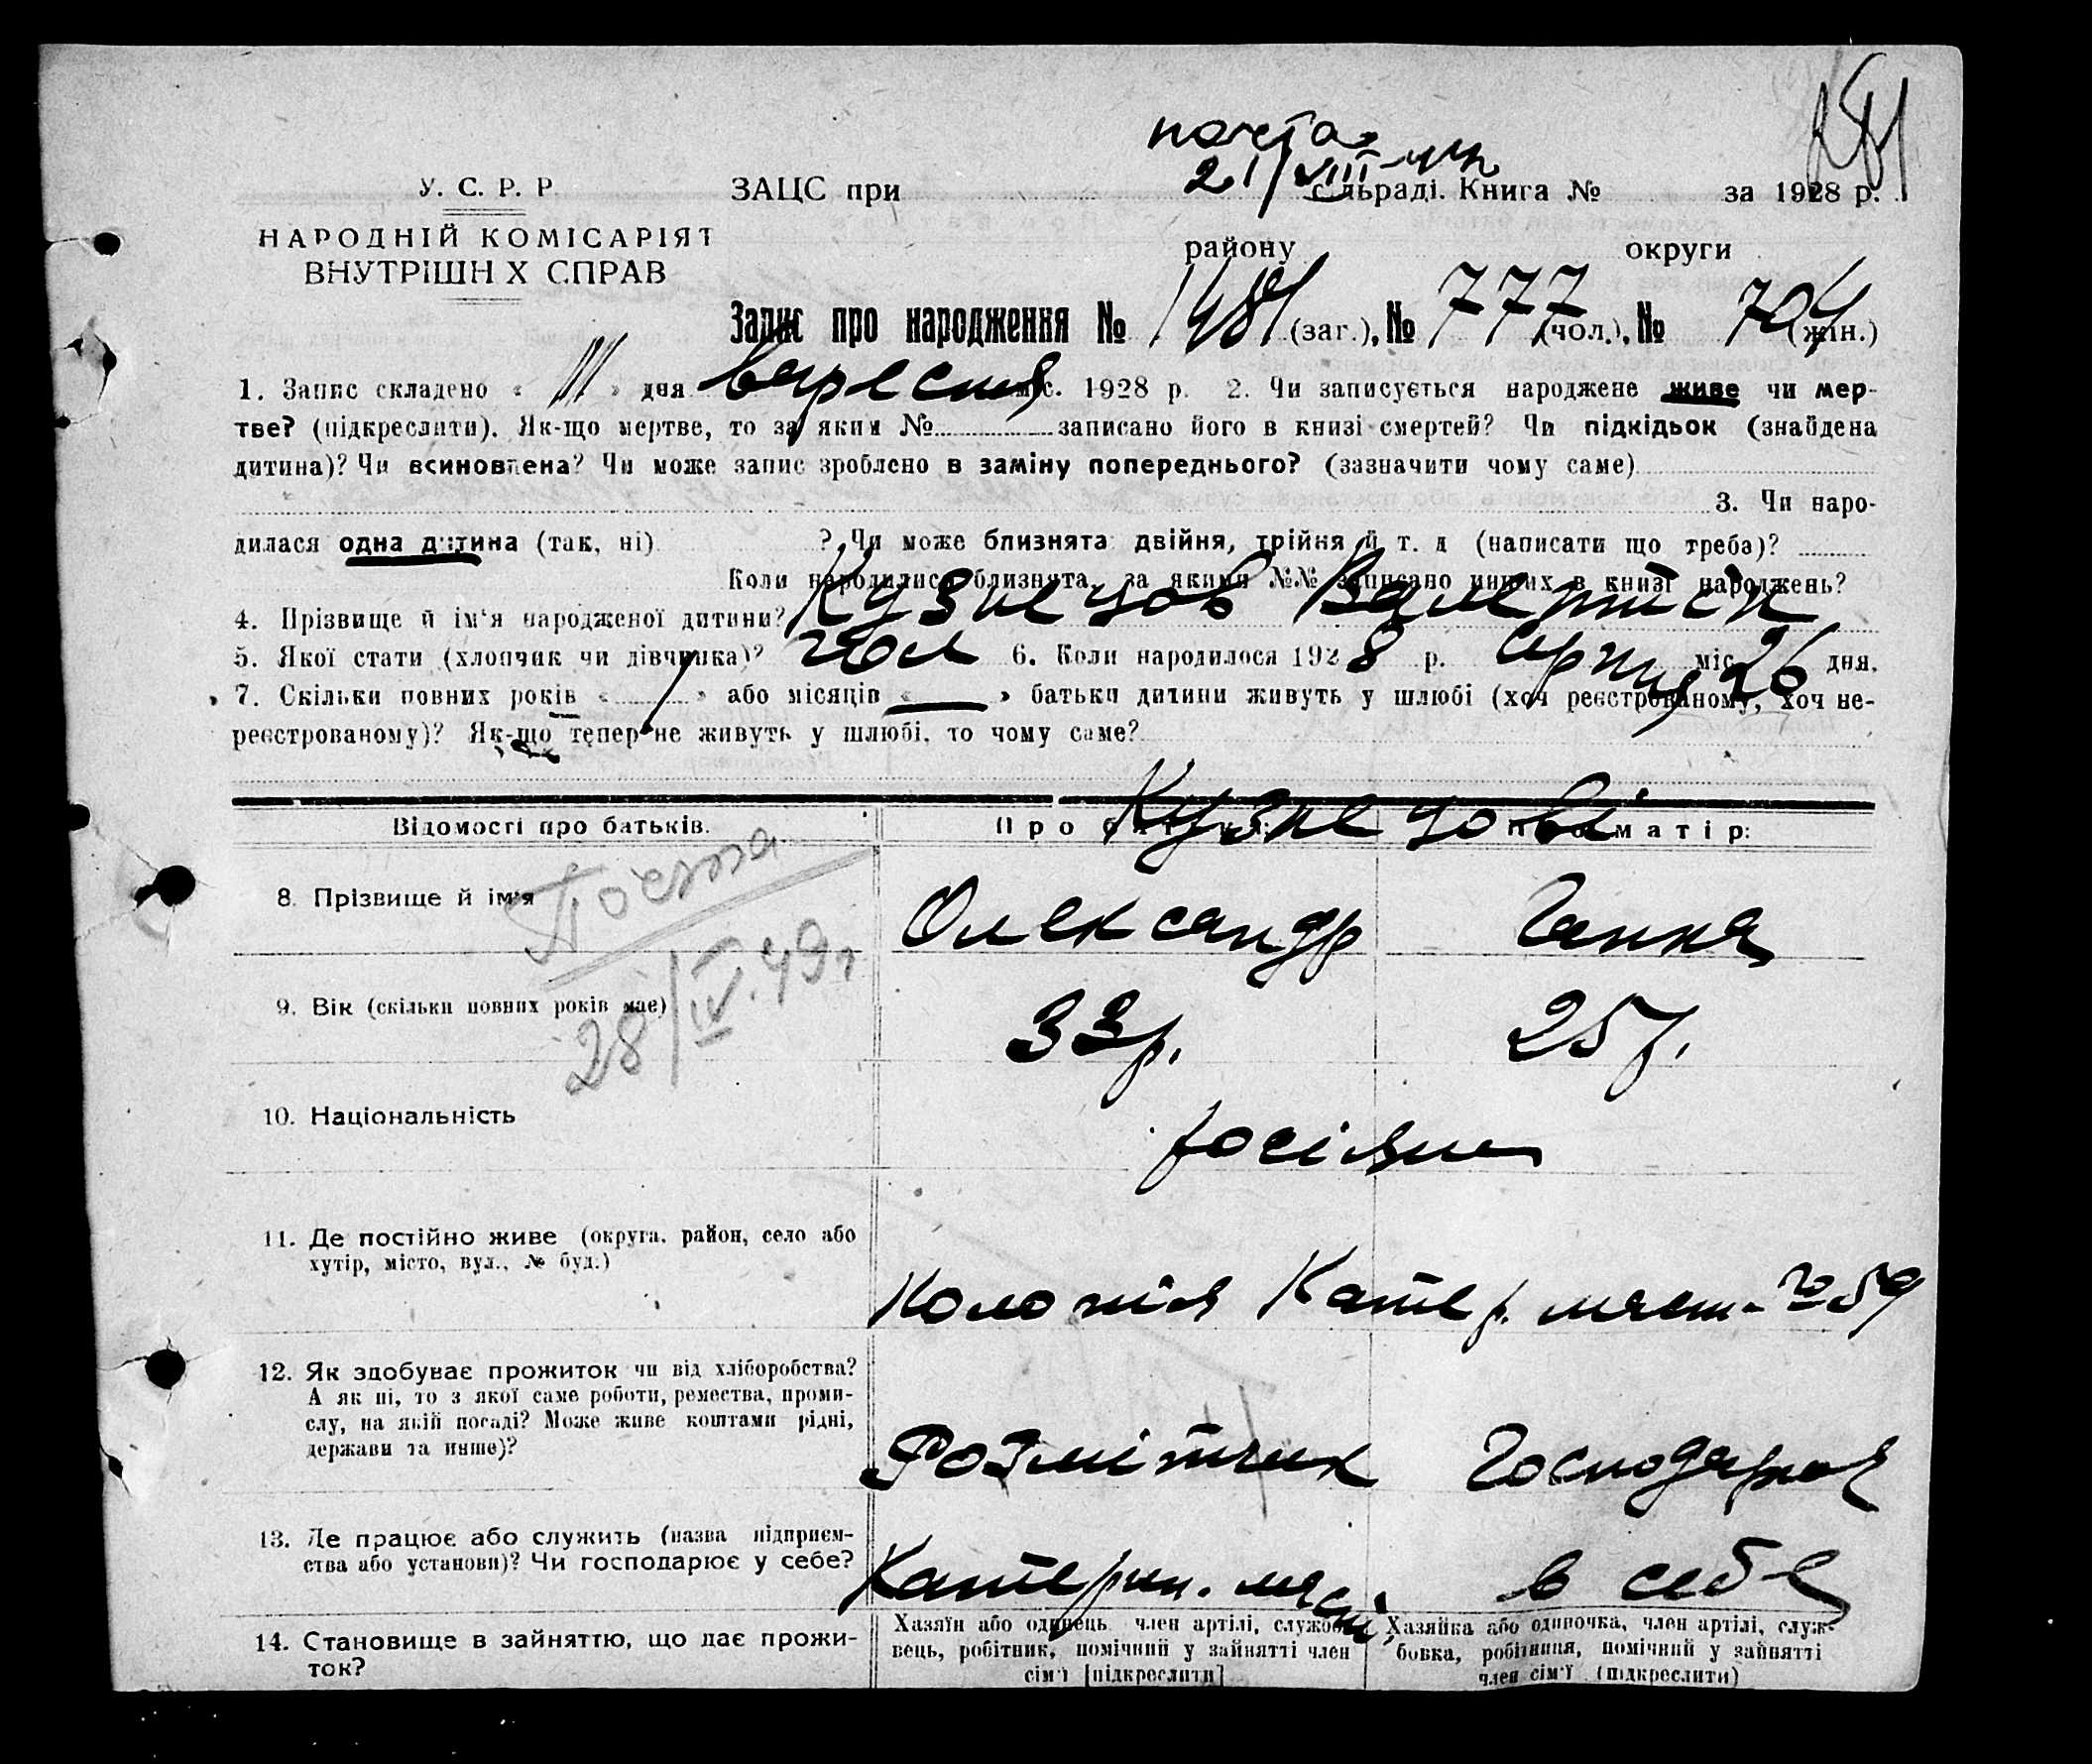 почта
21/VIII-44г.
У. С. Р. Р.
НАРОДНІЙ КОМІСАРІЯТ
ВНУТРІШН Х СПРАВ
ЗАЦС при сільраді. Книга № за 1928 р.
району округи
Запис про народження № 1481 (заг.), № 777 (чол.), № 704 (жін.)
1. Запис складено « » дня вересня міс. 1928 р. 2. Чи записується народжене живе чи мер-
тве? (підкреслити). Як-що мертве, то за яким № записано його в книзі смертей? Чи підкідьок (знайдена
дитина)? Чи всиновлена? Чи може запис зроблено в заміну попереднього? (зазначити чому саме)
3. Чи наро-
дилася одна дитина (так, ні) ? Чи може близнята: двійня, трійня й т. д. (написати що треба)?
Коли народилися близнята, за якими №№ записано инших в книзі народжень?
4. Прізвище й ім'я народженої дитини? Кузнецов Валентін
5. Якої стати (хлопчик чи дівчинка)? чол 6. Коли народилося 1928 р. серпня міс. 26 дня.
7. Скільки повних років « » або місяців « — » батьки дитини живуть у шлюбі (хоч реєстрованому, хоч не-
реєстрованому)? Як-що тепер не живуть у шлюбі, то чому саме?
Кузнецові
Відомості про батьків. Про батька: Про матір:
Поспа
28/IV.49г
8. Прізвище й ім'я Олександр Ганна
9. Вік (скільки повних років має) 33р. 25р.
10. Національність росіяне
11. Де постійно живе (округа, район, село або
хутір, місто, вул., № буд.)
Колонія Катер. маєт. 59
12. Як здобуває прожиток чи від хліборобства?
А як ні, то з якої саме роботи, ремества, проми-
слу, на якій посаді? Може живе коштами рідні,
держави та инше)?
Розмітчик Господарює
13. Де працює або служить (назва підприєм-
ства або установи)? Чи господарює у себе?
Катерин. маєт. в себе
14. Становище в зайняттю, що дає прожи-
ток?
Хазяїн або одинець, член артілі, службо-
вець, робітник, помічний у зайнятті член
сім'ї [підкреслити]
Хазяйка або одиночка, член артілі, служ-
бовка, робітниця, помічний у зайнятті
член сім'ї (підкреслити)